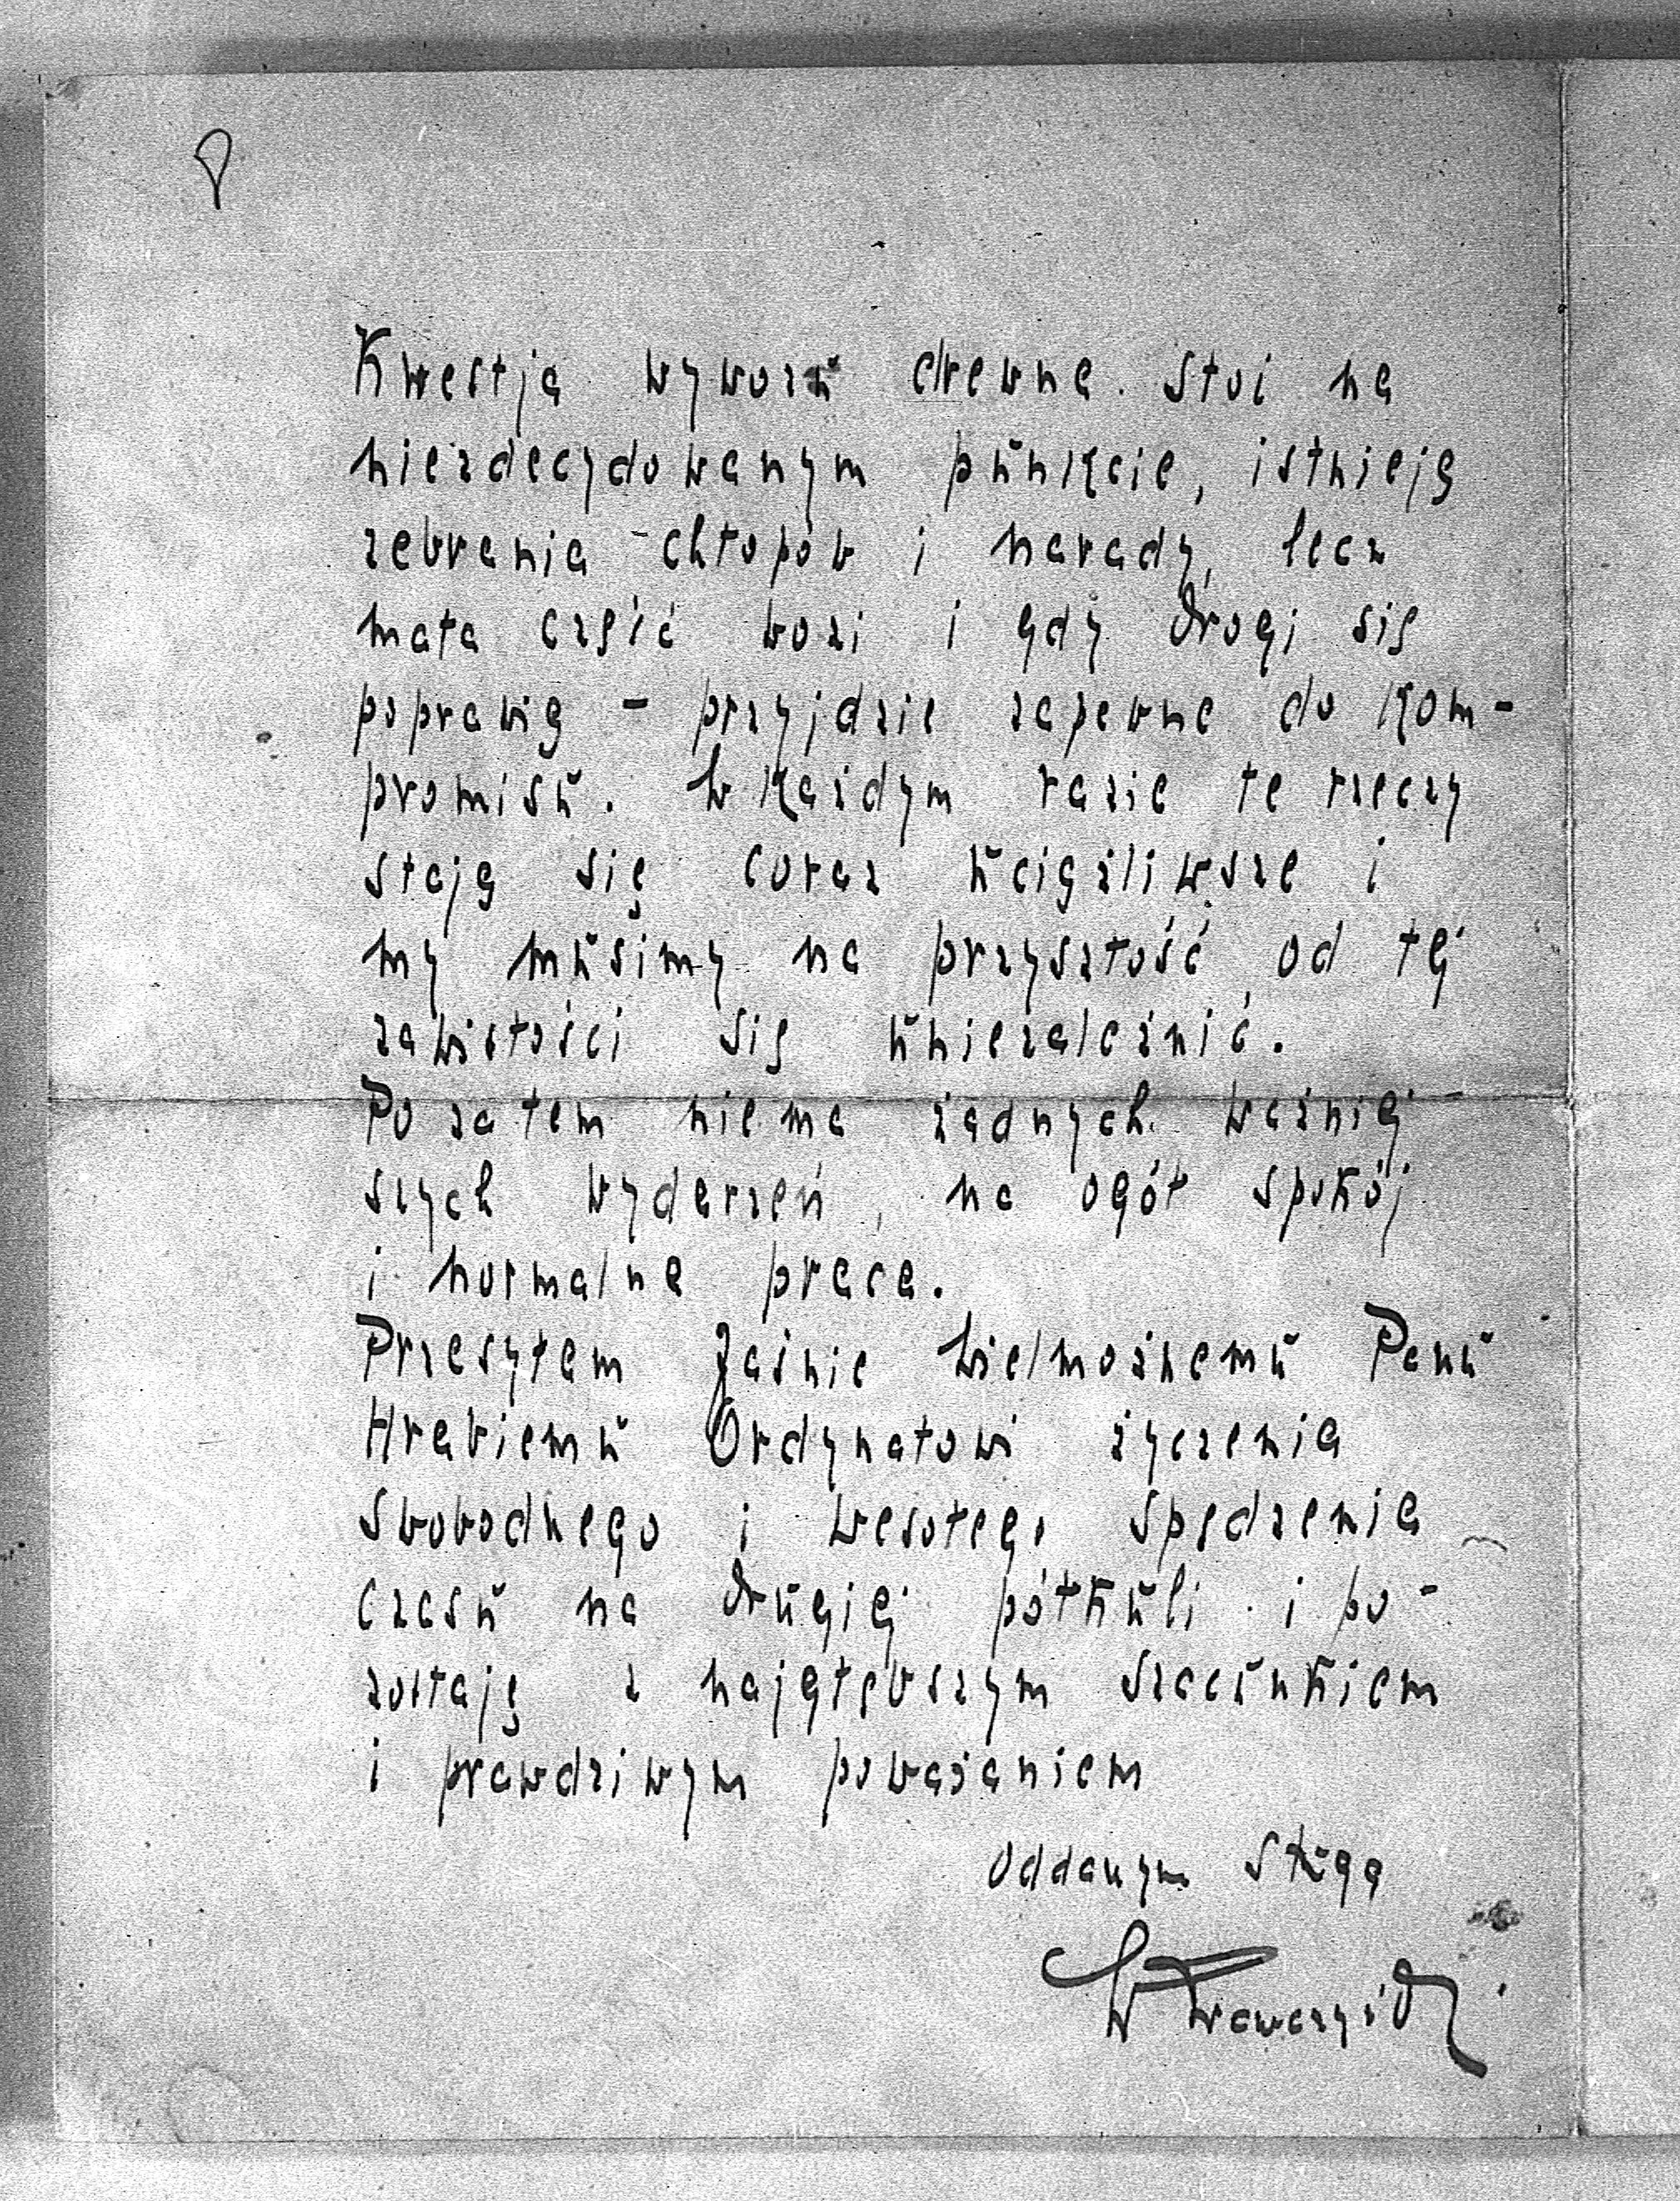 Kwestja wywozu drewna stoi na
niezdecydowanym punkcie, istnieją
zebrania chłopów i narady, lecz
mała część wozi i gdy drogi się
poprawią - przyjdzie zapewne do kom-
promisu. W każdym razie te rzeczy
stają się coraz uciążliwsze i
my musimy na przyszłość od tej
zawisłości się uniezależnić.
Po za tem niema żadnych ważniej-
szych wydarzeń, na ogół spokój
i normalna praca.
Przesyłam Jaśnie Wielmożnemu Panu
Hrabiemu Ordynatowi życzenia
swobodnego i wesołego spędzenia
czasu na drugiej półkuli i po-
zostaję z najgłębszym szacunkiem
i prawdziwym poważaniem
oddanym sługą